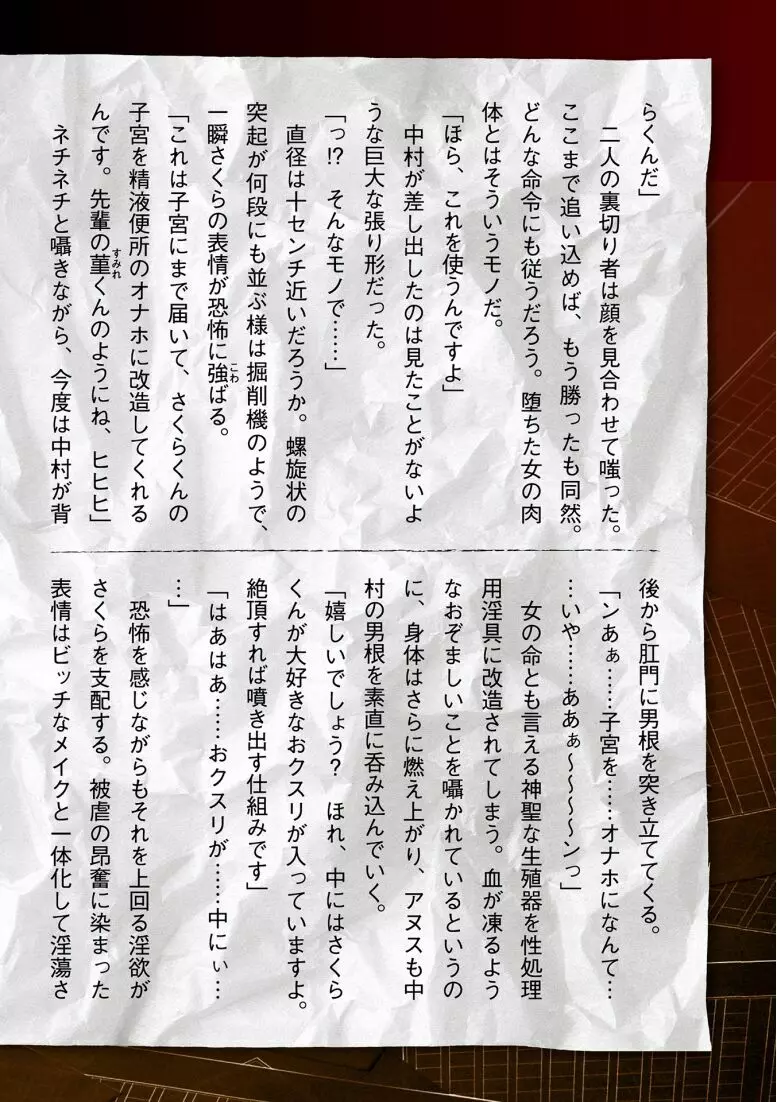 らくんだ」
　二人の裏切り者は顔を見合わせて嗤った。
ここまで追い込めば、もう勝ったも同然。
どんな命令にも従うだろう。堕ちた女の肉
体とはそういうモノだ。
「ほら、これを使うんですよ」
　中村が差し出したのは見たことがないよ
うな巨大な張り形だった。
「っ!?　そんなモノで……」
　直径は十センチ近いだろうか。螺旋状の
突起が何段にも並ぶ様は掘削機のようで、
一瞬さくらの表情が恐怖に強こわばる。
「これは子宮にまで届いて、さくらくんの
子宮を精液便所のオナホに改造してくれる
んです。先輩の菫すみれくんのようにね、ヒヒヒ」
　ネチネチと囁きながら、今度は中村が背
後から肛門に男根を突き立ててくる。
「ンあぁ……子宮を……オナホになんて…
…いや……ああぁ〜〜〜〜ンっ」
　女の命とも言える神聖な生殖器を性処理
用淫具に改造されてしまう。血が凍るよう
なおぞましいことを囁かれているというの
に、身体はさらに燃え上がり、アヌスも中
村の男根を素直に呑み込んでいく。
「嬉しいでしょう？　ほれ、中にはさくら
くんが大好きなおクスリが入っていますよ。
絶頂すれば噴き出す仕組みです」
「はあはあ……おクスリが……中にぃ…
…」
　恐怖を感じながらもそれを上回る淫欲が
さくらを支配する。被虐の昂奮に染まった
表情はビッチなメイクと一体化して淫蕩さ